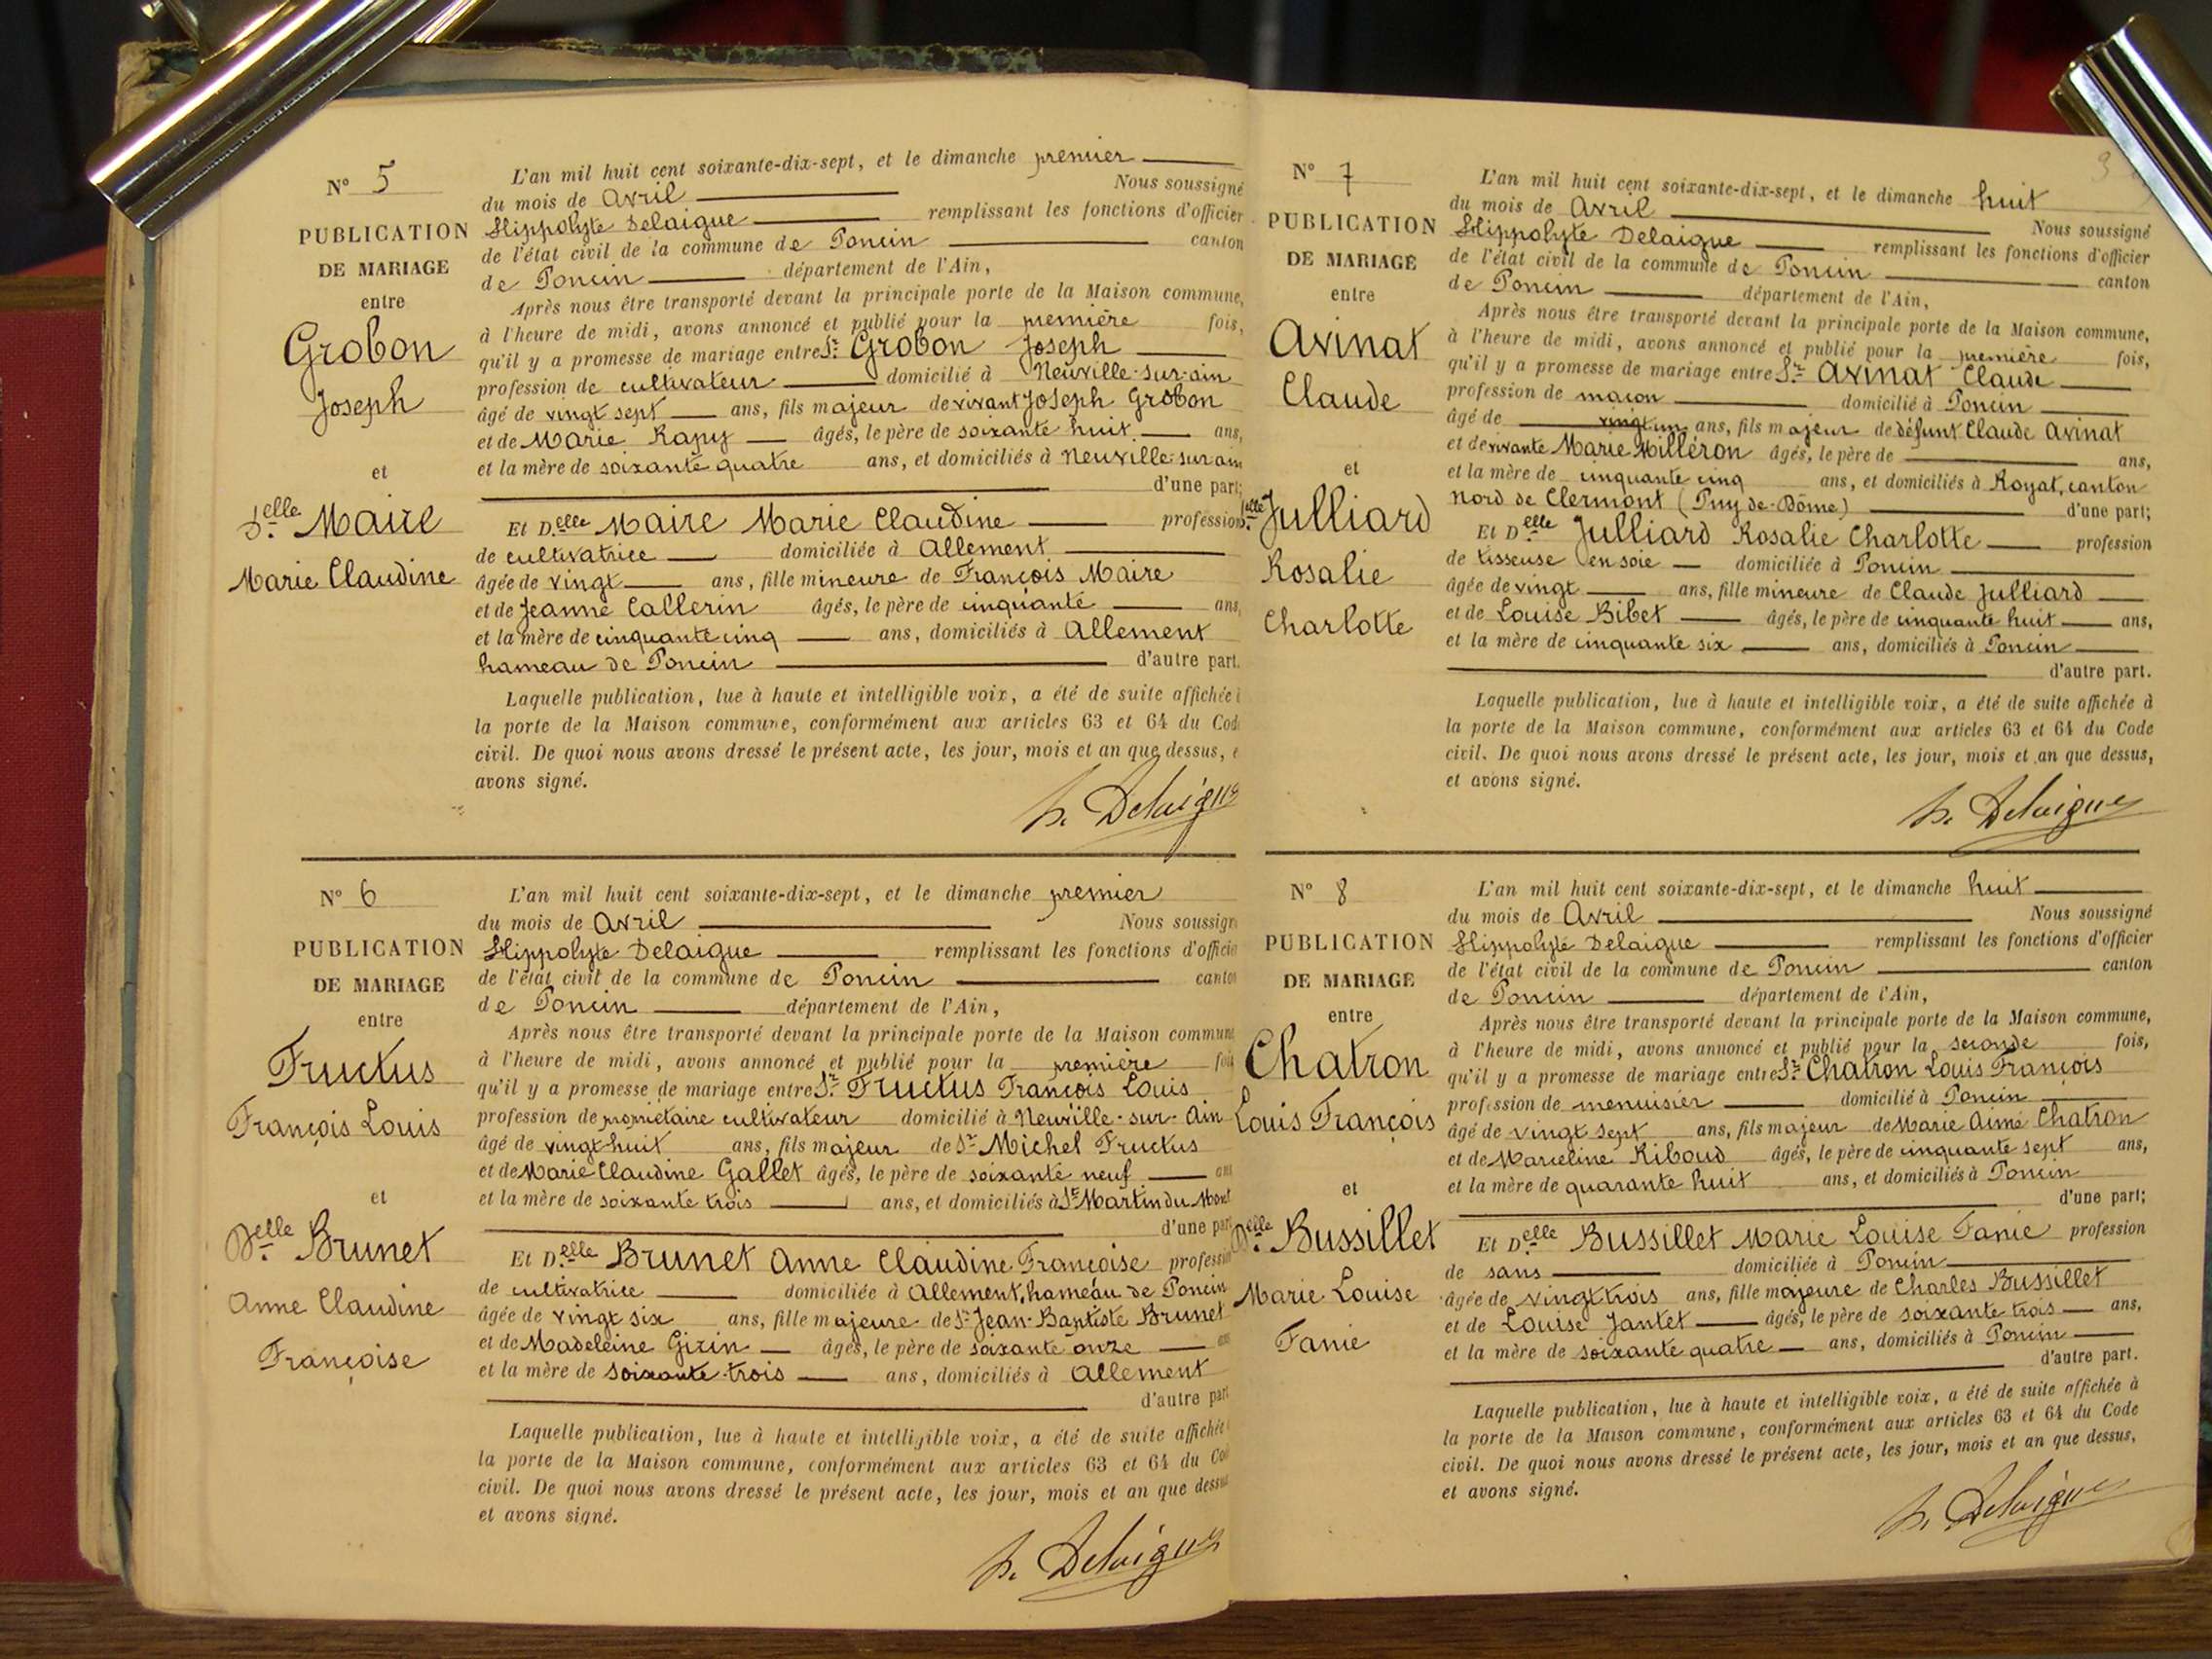 N° 5
PUBLICATION
DE MARIAGE
entre
Grobon
Joseph
et
D.elle Maire
Marie Claudine
L'an mil huit cent soixante-dix-sept, et le dimanche premier
du mois de Avril Nous soussigné
Hippolyte Delaigue remplissant les fonctions d'officier
de l'état civil de la commune de Poncin canton
de Poncin département de l'Ain,
Après nous être transporté devant la principale porte de la Maison commune,
à l'heure de midi, avons annoncé et publié pour la première fois,
qu'il y a promesse de mariage entre Sr. Grobon Joseph
profession de cultivateur domicilié à Neuville-sur-ain
âgé de vingt sept ans, fils majeur de vivant Joseph Grobon
et de Marie Rapy âgés, le père de soixante huit ans,
et la mère de soixante quatre ans, et domiciliés à Neuville-sur-ain
d'une part;
Et D.elle Maire Marie Claudine profession
de cultivatrice domiciliée à Allement
âgée de vingt ans, fille mineure de François Maire
et de Jeanne Callerin âgés, le père de cinquante ans,
et la mère de cinquante cinq ans, domiciliés à Allement
hameau de Poncin d'autre part.
Laquelle publication, lue à haute et intelligible voix, a été de suite affichée
la porte de la Maison commune, conformément aux articles 63 et 64 du Cod
civil. De quoi nous avons dressé le présent acte, les jour, mois et an que dessus, e
avons signé.
h. Delaigue
N° 6
PUBLICATION
DE MARIAGE
entre
Fructus
François Louis
et
Delle Brunet
Anne Claudine
Françoise
L'an mil huit cent soixante-dix-sept, et le dimanche premier
du mois de Avril Nous soussign
Hippolyte Delaigue remplissant les fonctions d'offici
de l'état civil de la commune de Poncin canton
de Poncin département de l'Ain,
Après nous être transporté devant la principale porte de la Maison commune
à l'heure de midi, avons annoncé et publié pour la première fois
qu'il y a promesse de mariage entre Sr. Fructus François Louis
profession de propriétaire cultivateur domicilié à Neuville-sur-Ain
âgé de vingt-huit ans, fils majeur de Sr Michel Fructus
et de Marie Claudine Gallet âgés, le père de soixante neuf ans
et la mère de soixante trois ans, et domiciliés à St Martin du Mont
d'une part
Et D.elle Brunet Anne Claudine Françoise profession
de cultivatrice domiciliée à Allement, hameau de Poncin
âgée de vingt six ans, fille majeure de Sr Jean-Baptiste Brunet
et de Madeleine Girin âgés, le père de soixante onze ans
et la mère de soixante-trois ans, domiciliés à Allement
d'autre part
Laquelle publication, lue à haute et intelligible voix, a été de suite affichée
la porte de la Maison commune, conformément aux articles 63 et 64 du Co
civil. De quoi nous avons dressé le présent acte, les jour, mois et an que dessus
et avons signé.
h. Delaigue
N° 7
PUBLICATION
DE MARIAGE
entre
Avinat
Claude
et
D.elle Julliard
Rosalie
Charlotte
L'an mil huit cent soixante-dix-sept, et le dimanche huit
du mois de Avril Nous soussigné
Hippolyte Delaigue remplissant les fonctions d'officier
de l'état civil de la commune de Poncin canton
de Poncin département de l'Ain,
Après nous être transporté devant la principale porte de la Maison commune,
à l'heure de midi, avons annoncé et publié pour la première fois,
qu'il y a promesse de mariage entre Sr. Avinat Claude
profession de maçon domicilié à Poncin
âgé de vingt un ans, fils majeur de défunt Claude Avinat
et de vivante Marie Milléron âgés, le père de ans,
et la mère de cinquante cinq ans, et domiciliés à Royat, canton
nord de Clermont (Puy-de-Dôme) d'une part;
Et D.elle Julliard Rosalie Charlotte profession
de tisseuse en soie domiciliée à Poncin
âgée de vingt ans, fille mineure de Claude Julliard
et de Louise Bibet âgés, le père de cinquante huit ans,
et la mère de cinquante six ans, domiciliés à Poncin
d'autre part.
Laquelle publication, lue à haute et intelligible voix, a été de suite affichée à
la porte de la Maison commune, conformément aux articles 63 et 64 du Code
civil. De quoi nous avons dressé le présent acte, les jour, mois et an que dessus,
et avons signé.
h. Delaigue
N° 8
PUBLICATION
DE MARIAGE
entre
Chatron
Louis François
et
D.elle Bussillet
Marie Louise
Fanie
L'an mil huit cent soixante-dix-sept, et le dimanche huit
du mois de Avril Nous soussigné
Hippolyte Delaigue remplissant les fonctions d'officier
de l'état civil de la commune de Poncin canton
de Poncin département de l'Ain,
Après nous être transporté devant la principale porte de la Maison commune,
à l'heure de midi, avons annoncé et publié pour la seconde fois,
qu'il y a promesse de mariage entre Sr. Chatron Louis François
profession de menuisier domicilié à Poncin
âgé de vingt sept ans, fils majeur de Marie Aimé Chatron
et de Marceline Riboud âgés, le père de cinquante sept ans,
et la mère de quarante huit ans, et domiciliés à Poncin
d'une part;
Et D.elle Bussillet Marie Louise Fanie profession
de sans domiciliée à Poncin
âgée de vingt trois ans, fille majeure de Charles Bussillet
et de Louise Jantet âgés, le père de soixante trois ans,
et la mère de soixante quatre ans, domiciliés à Poncin
d'autre part.
Laquelle publication, lue à haute et intelligible voix, a été de suite affichée à
la porte de la Maison commune, conformément aux articles 63 et 64 du Code
civil. De quoi nous avons dressé le présent acte, les jour, mois et an que dessus,
et avons signé.
h. Delaigue